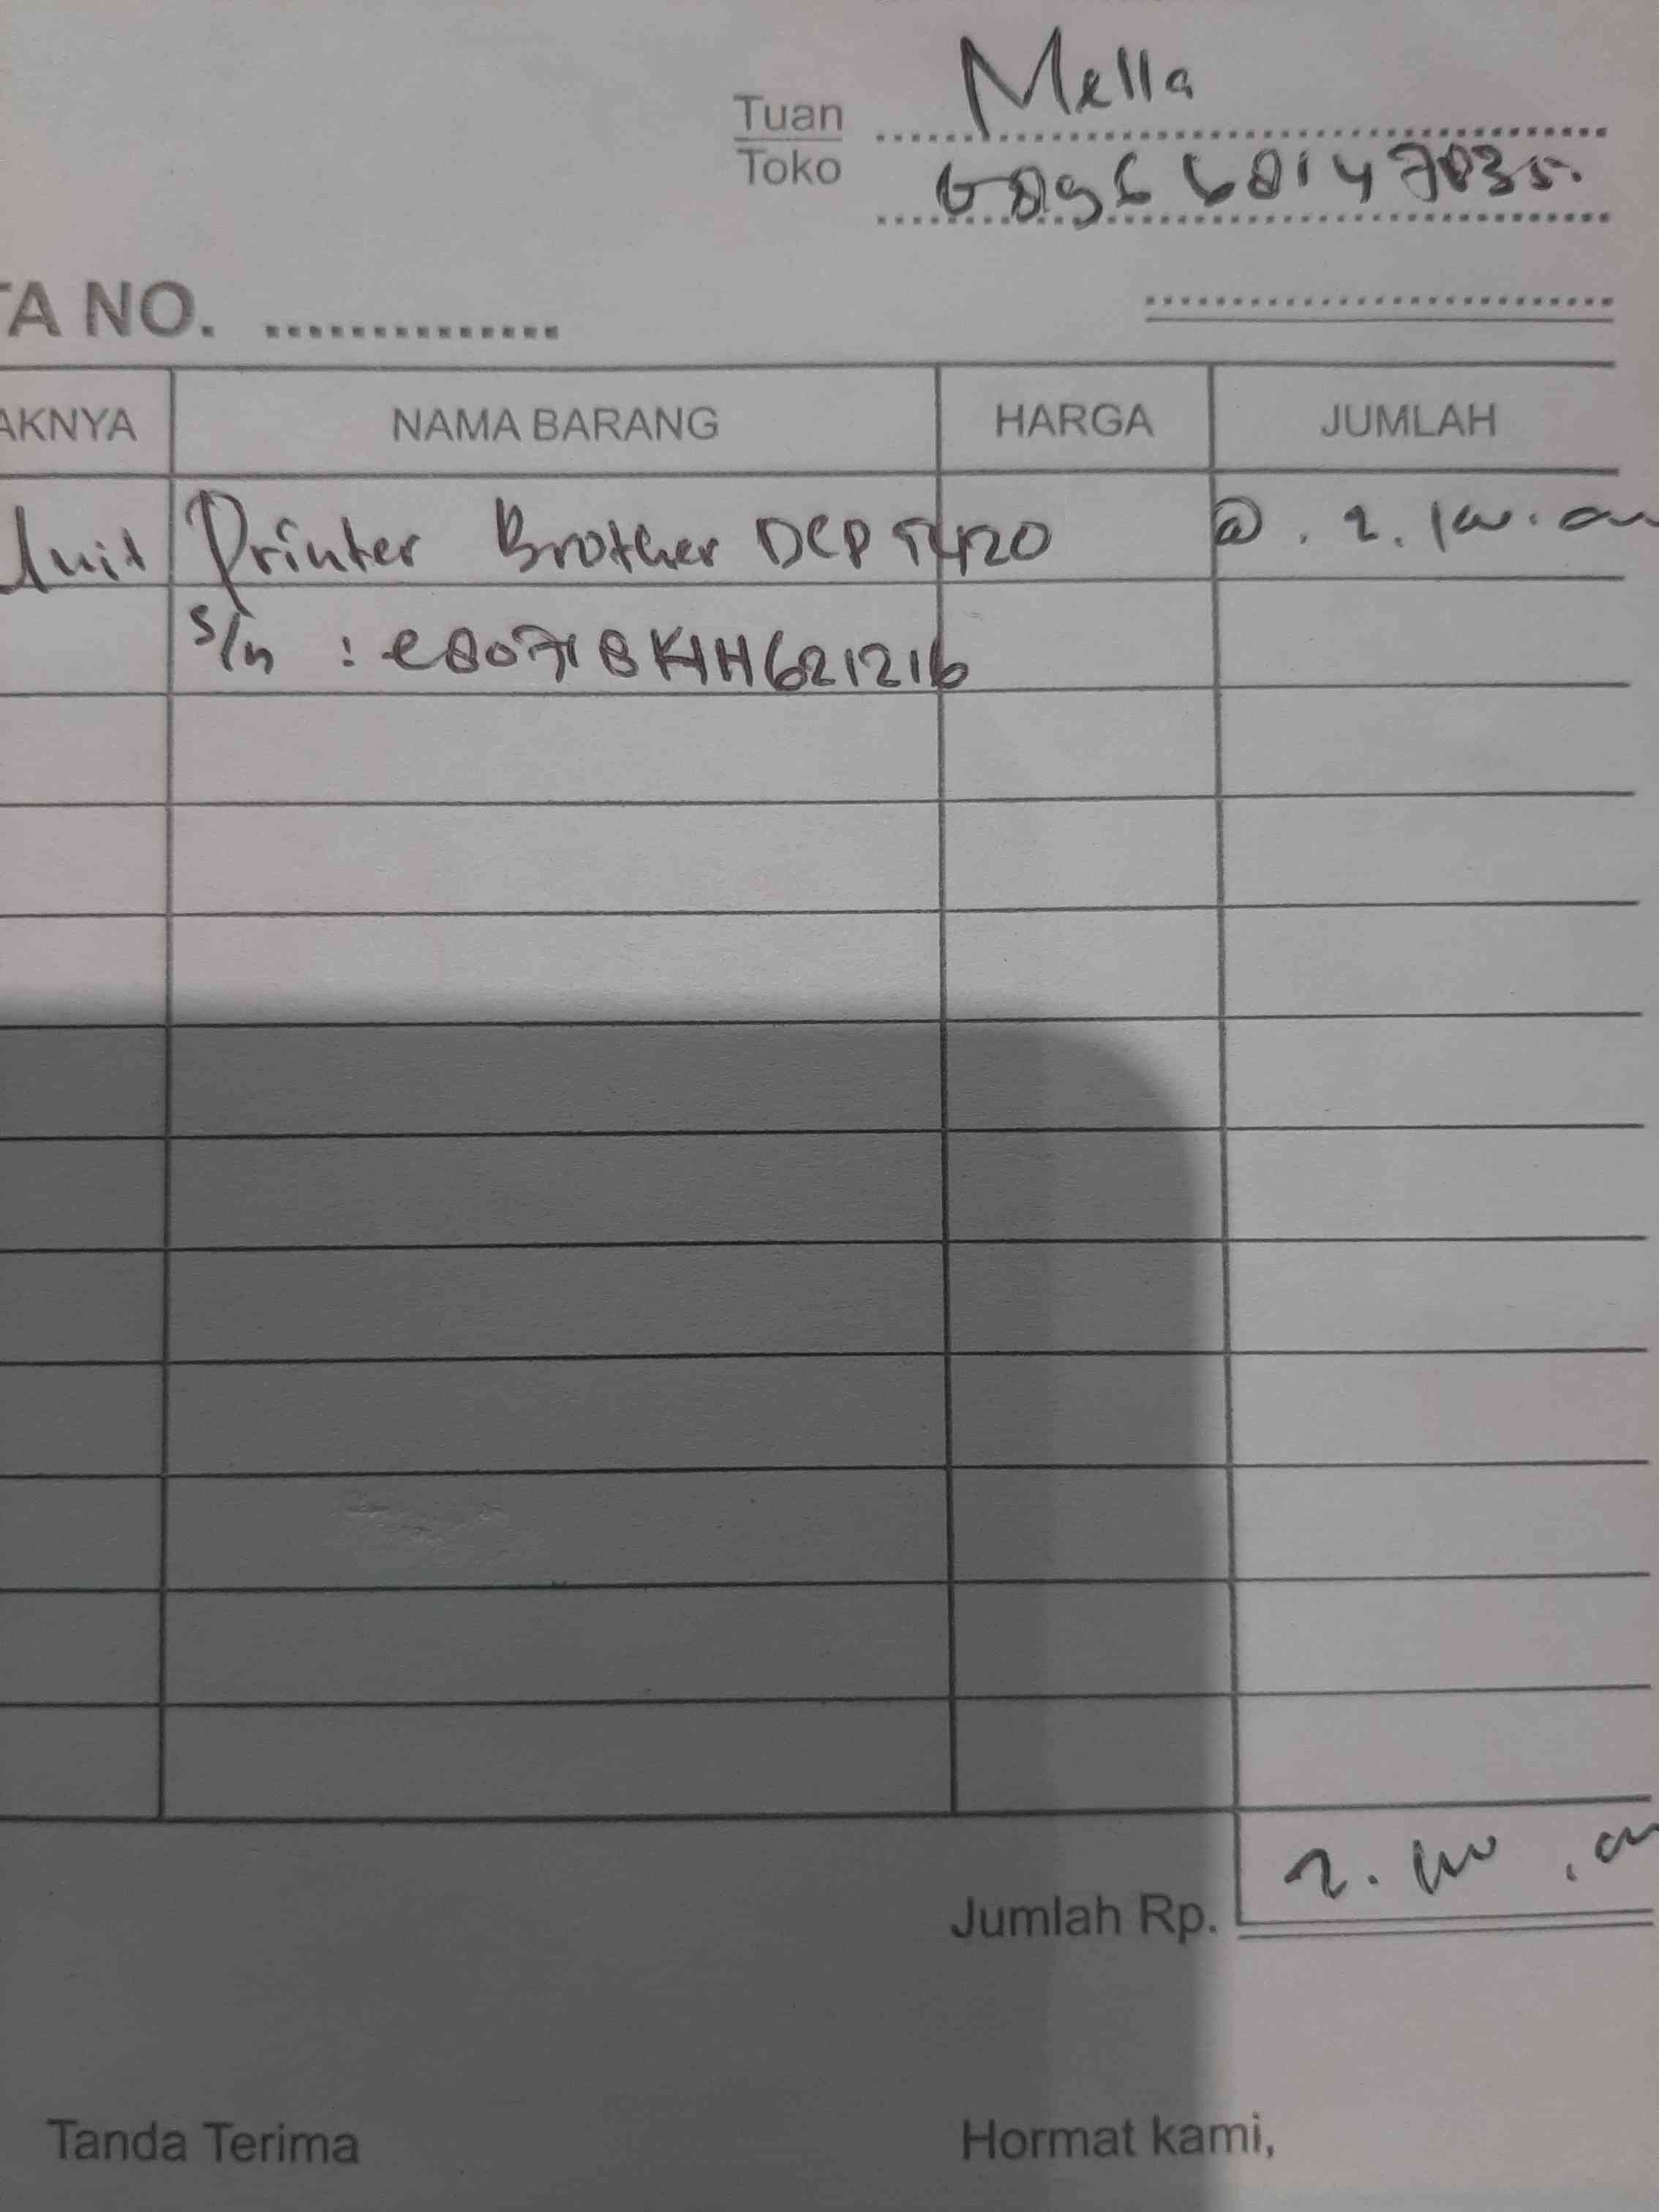 Tuan Mella
Toko
TA NO. ..............
AKNYA NAMA BARANG HARGA JUMLAH
Unit Printer Brother DCP T420 @. 2.100.000
S/n : E80718KHH621216
Jumlah Rp. 2.100.000
Tanda Terima Hormat kami,